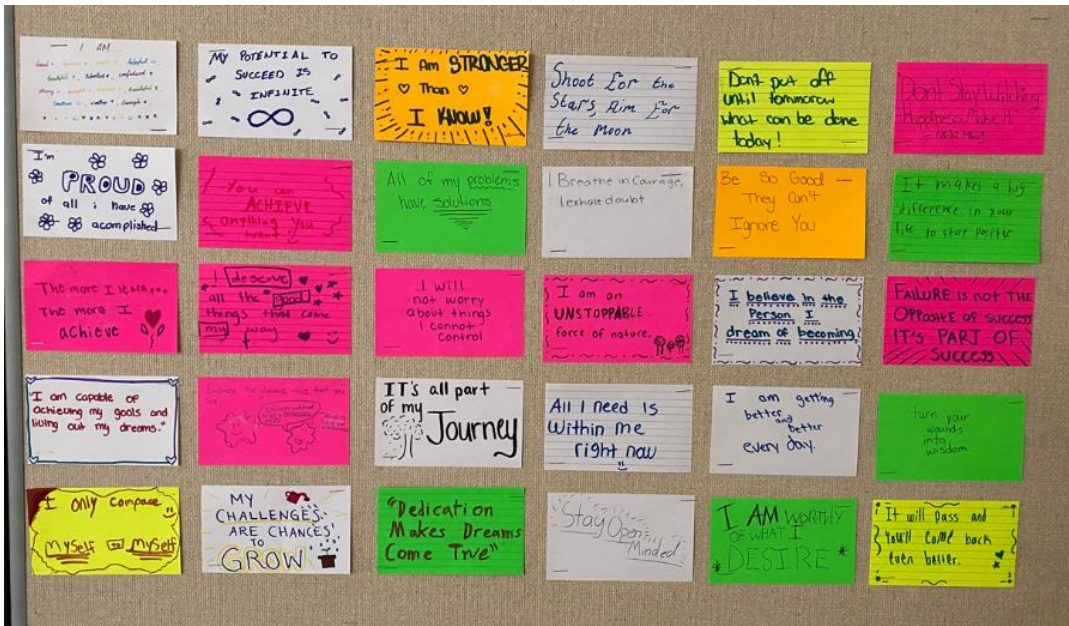 I AM...
MY POTENTIAL TO
SUCCEED IS
INFINITE
I Am STRONGER
Than
I KNOW!
Shoot For the
Stars, Aim For
the Moon
Dont put off
until tommorow
what can be done
today!
Dont Stay Watching
Happiness Make It
I'm
PROUD
of all i have
acomplished
You can
ACHIEVE
anything You
want!
All of my problems
have solutions
I Breathe in Courage,
I exhale doubt
Be So Good
They Can't
Ignore You
It makes a big
difference in your
life to stay positive
The more I learn...
The more I
achieve
I deserve
all the good
things that come
my way
I will
not worry
about things
I cannot
control
I am an
UNSTOPPABLE
force of nature.
I believe in the
Person I
dream of becoming
FAILURE IS NOT THE
OPPOSITE OF SUCCESS
IT'S PART OF
SUCCESS
"I am capable of
achieving my goals and
living out my dreams."
Embrace the glorious mess that you
are!
IT's all part
of my
Journey
All I need is
Within me
right now
I am getting
better
and
better
every day.
turn your
wounds
into
wisdom
I only compare
Myself to Myself
MY
CHALLENGES
ARE CHANCES
TO
GROW
"Dedication
Makes Dreams
Come True"
Stay Open
Minded
I AM WORTHY
OF WHAT I
DESIRE
It will Pass and
You'll Come back
even better.